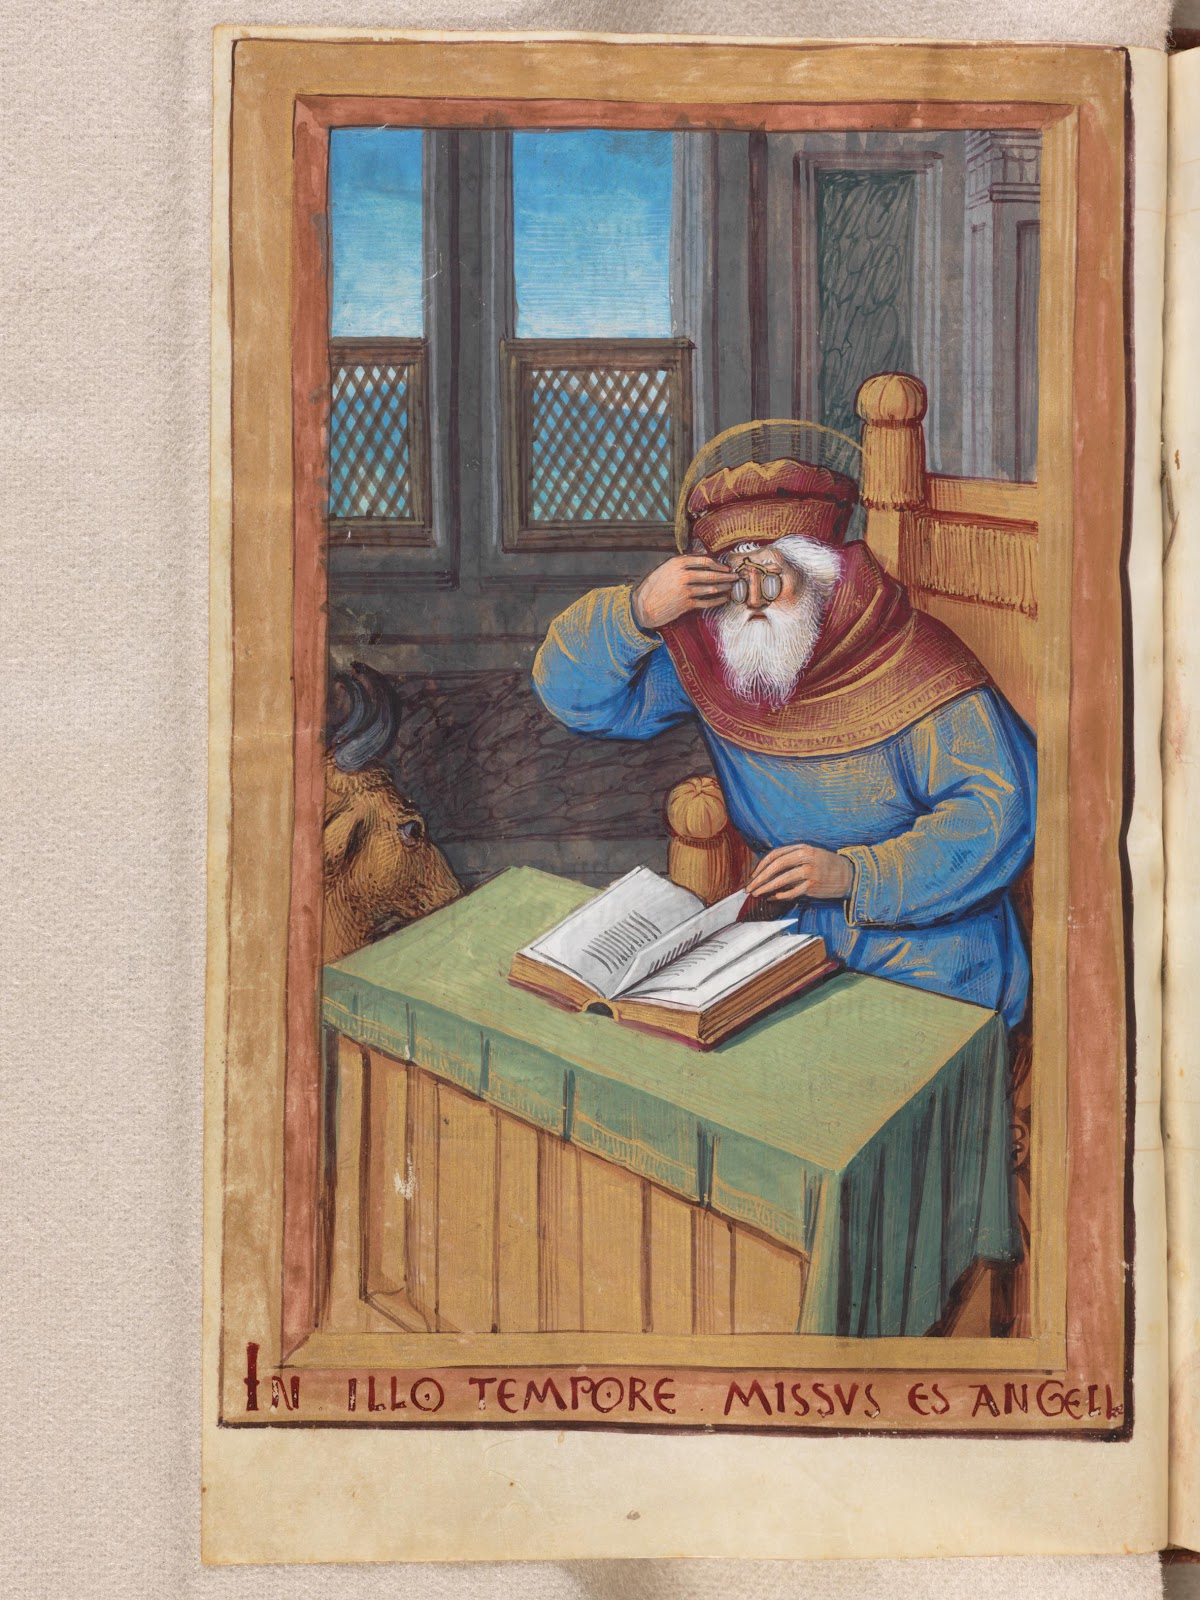 IN ILLO TEMPORE . MISSVS ES ANGELL